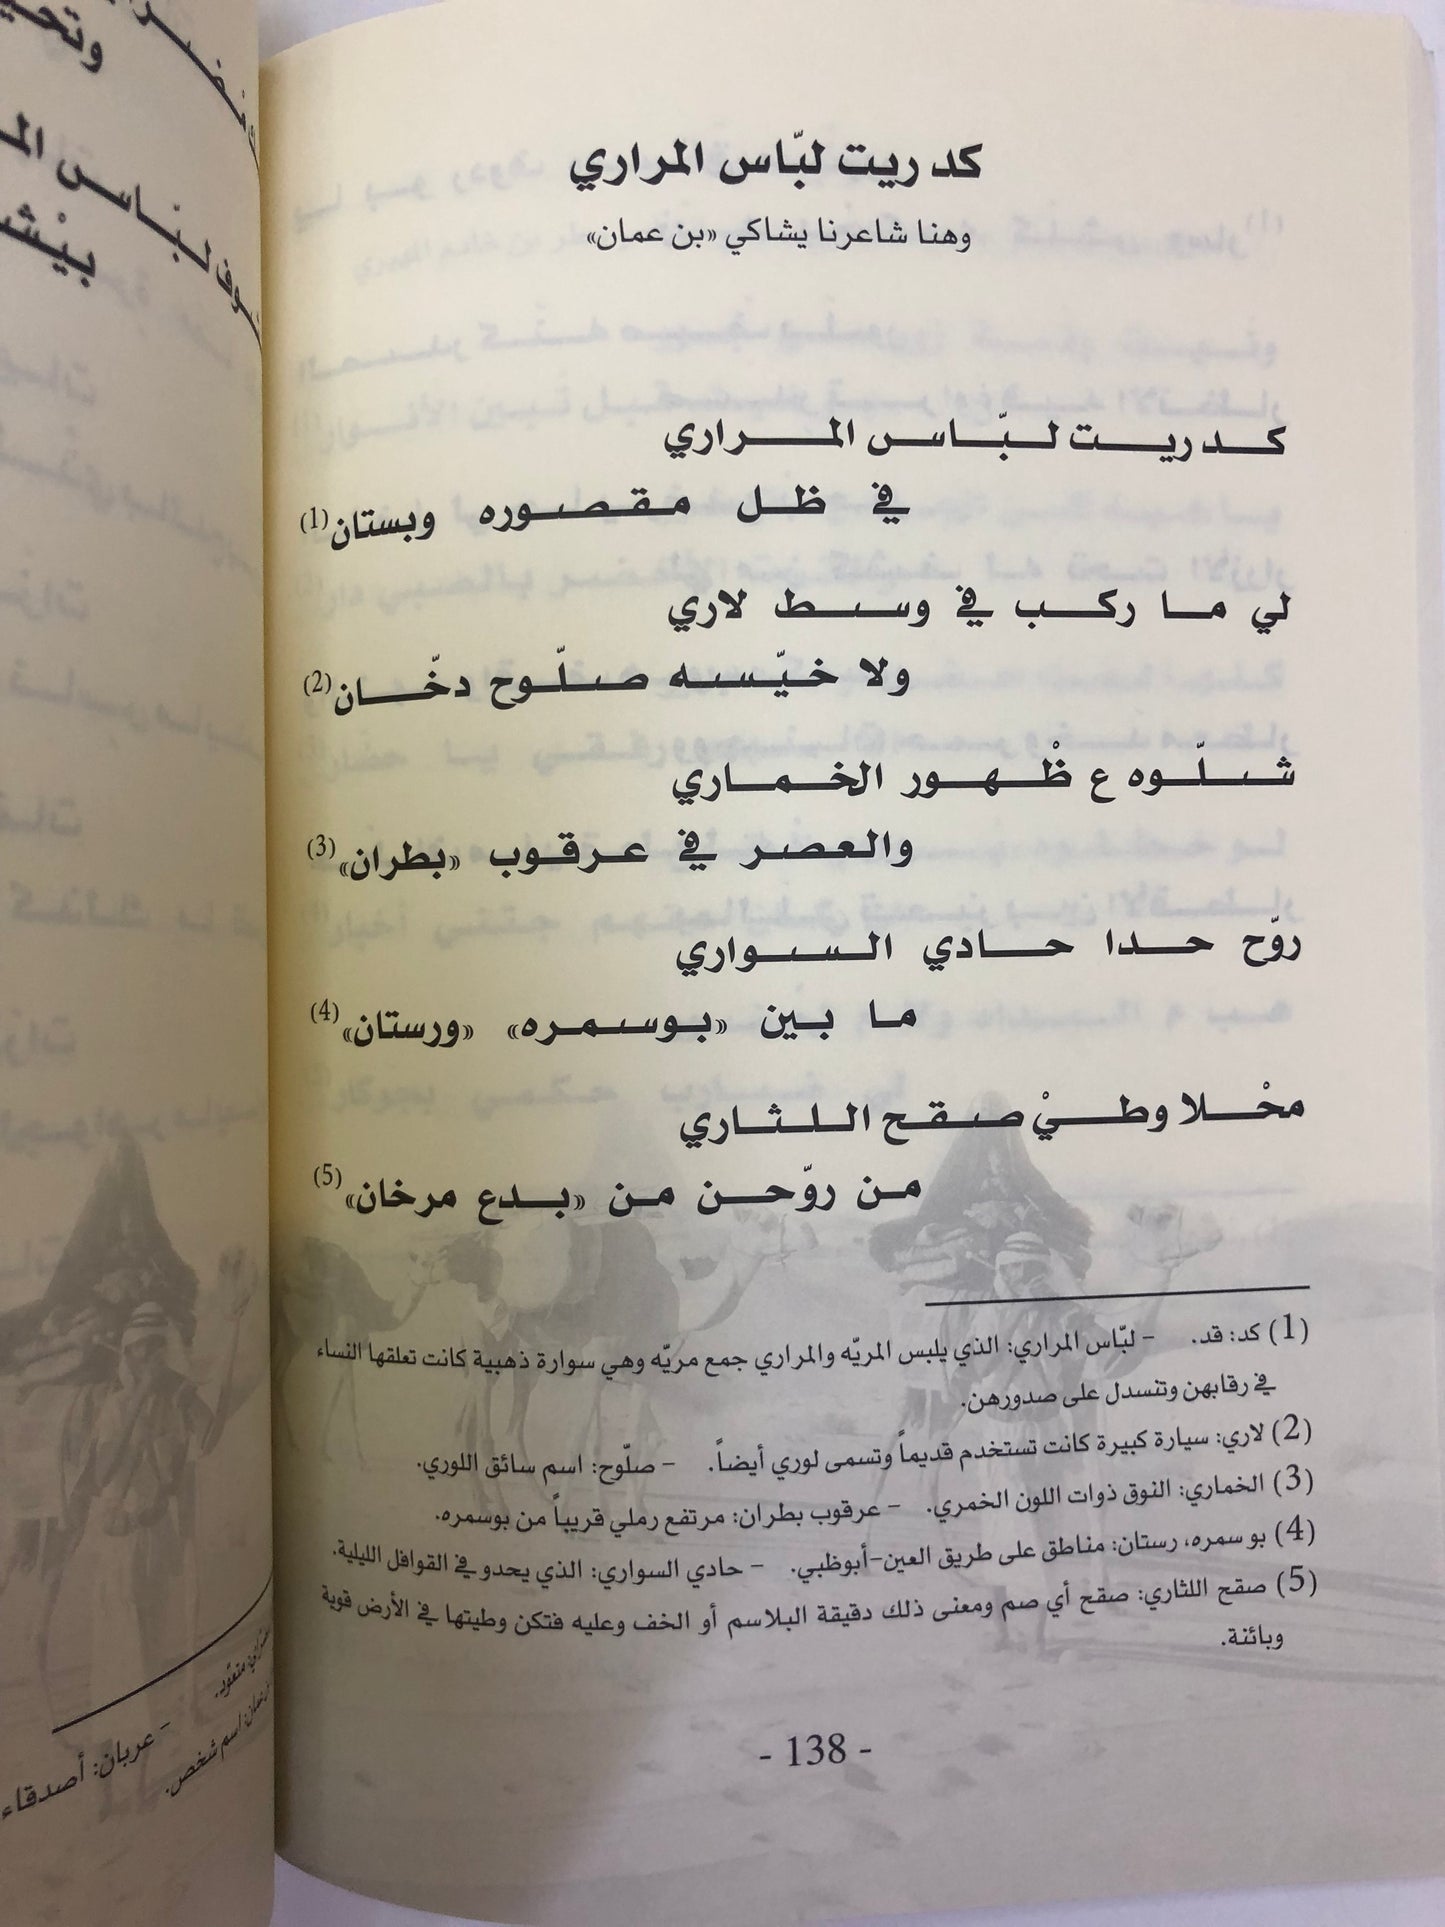 كد ريت لبّاس المراري
وهنا شاعرنا يشاكي «بن عمان»
كد ريت لبّاس المراري
في ظل مقصوره وبستان(1)
لي ما ركب في وسط لاري
ولا خيّسه صلّوح دخّان(2)
شلّوه ع ظْهور الخماري
والعصر في عرقوب «بطران»(3)
روّح حدا حادي السواري
ما بين «بوسمره» «ورستان»(4)
محْلا وطيْ صقح اللثاري
من روّحن من «بدع مرخان»(5)
(1) كد: قد. - لبّاس المراري: الذي يلبس المريّه والمراري جمع مريّه وهي سوارة ذهبية كانت تعلقها النساء
في رقابهن وتنسدل على صدورهن.
(2) لاري: سيارة كبيرة كانت تستخدم قديماً وتسمى لوري أيضاً. - صلّوح: اسم سائق اللوري.
(3) الخماري: النوق ذوات اللون الخمري. - عرقوب بطران: مرتفع رملي قريباً من بوسمره.
(4) بو سمره، رستان: مناطق على طريق العين-أبوظبي. - حادي السواري: الذي يحدو في القوافل الليلية.
(5) صقح اللثاري: صقح أي صم ومعنى ذلك دقيقة البلاسم أو الخف وعليه فتكن وطيتها في الأرض قوية
وبائنة.
- 138 -
وتحي
لبّاس الم
بينْش
- عربان: أصدقاء
متعوّد.
اسم شخص.